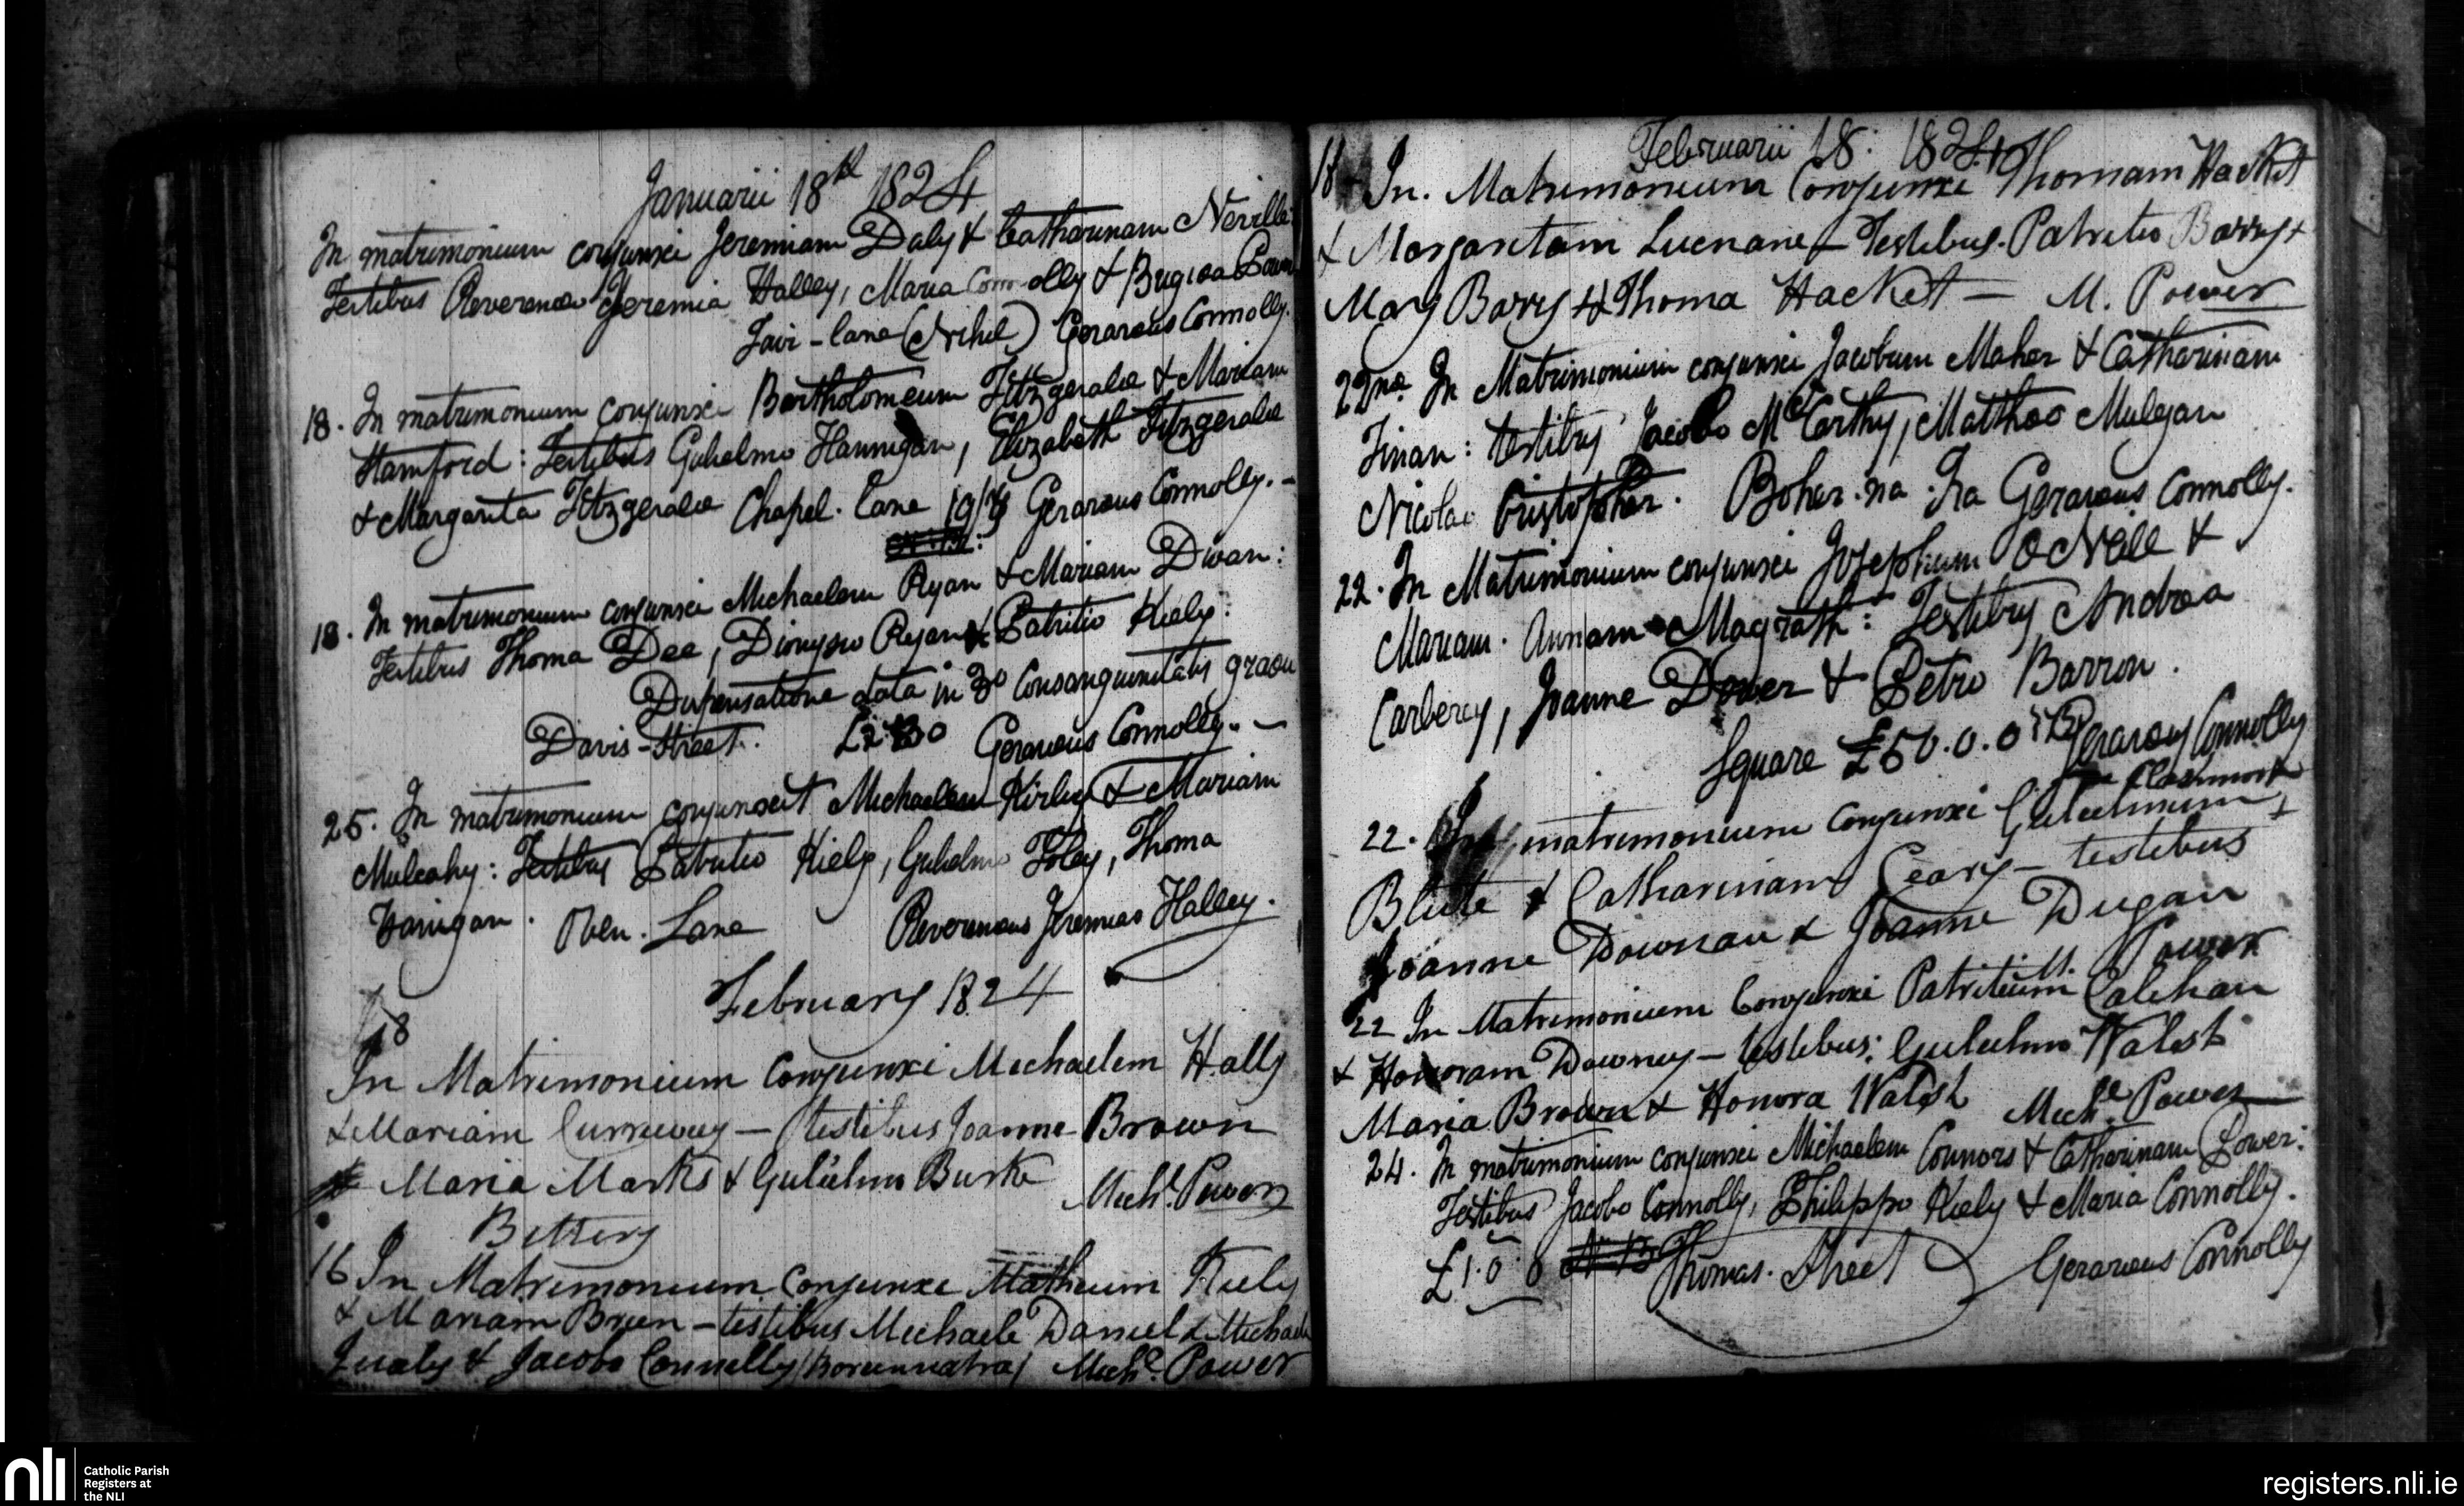 Januarii 18th 1824
In matrimonium conjunxi Jeremiam Daly & Catharinam Neville
Testibus Reverendo Jeremia Halley, Maria Connolly & Brigida Power
lane (Nihil) Gerardus Connolly.
18. In matrimonium conjunxi Bartholomeum Fitzgerald & Mariam
Stamford: Testibus Gulielmo Hannigan, Elizabeth Fitzgerald
& Margarita Fitzgerald Chapel. Lane Gerardus Connolly. -
18. In matrimonium conjunxi Michaelem Ryan & Mariam Divan:
Testibus Thoma Dee, Dionysio Ryan & Patritio Kiely:
Dispensatione data in 3o Consanguinitatis gradu
Davis-Street. Gerardus Connolly. -
25. In matrimonium conjunxit Michaelem Kirby & Mariam
Mulcahy: Testibus Patritio Kiely, Gulielmo Foley, Thoma
Hanigan. Lane Reverendus Jeremias Halley.
February 1824
18
In Matrimonium Conjunxi Michaelem Hally
& Mariam - testibus Joanne Brown
Maria Marks & Gulielmo Burke Michl. Power
16 In Matrimonium Conjunxi Matheum Kiely
& Mariam Breen - testibus Michaele Daniel & Michaele
& Jacobo Connelly Michl. Power
Februarii 18: 1824
18 - In. Matrimonium Conjunxi Thomam Hacket
& Margaritam - Testibus. Patritio Barry &
Mary Barry & Thoma Hacket - M. Power
22nd. In Matrimonium conjunxi Jacobum Maher & Catharinam
Finan: testibus Jacobo McCarthy, Matthaeo Mulgan
Nicolao Cristopher. Boher. na. Tra Gerardus Connolly.
22. In Matrimonium conjunxi Josephum O Neill &
Mariam. Annam Magrath: Testibus Andrea
Carbery, Joanne Dower & Petro Barron.
Square £50.0.0 Gerardus Connolly
22. In matrimonium Conjunxi Gulielmum
Blute & Catharinam Geary - testibus
Joanne Downan & Joanne Dugan
M. Power
22 In Matrimonium Conjunxi Patritium Calehan
& Honoram Downey - testibus: Gulielmo Walsh
Maria Brown & Honora Walsh Michl. Power
24. In matrimonium conjunxi Michaelem Connors & Catharinam Power:
Testibus Jacobo Connolly, Philippo Kiely & Maria Connolly.
Thomas. Street Gerardus Connolly
nli
Catholic Parish
Registers at
the NLI
registers.nli.ie